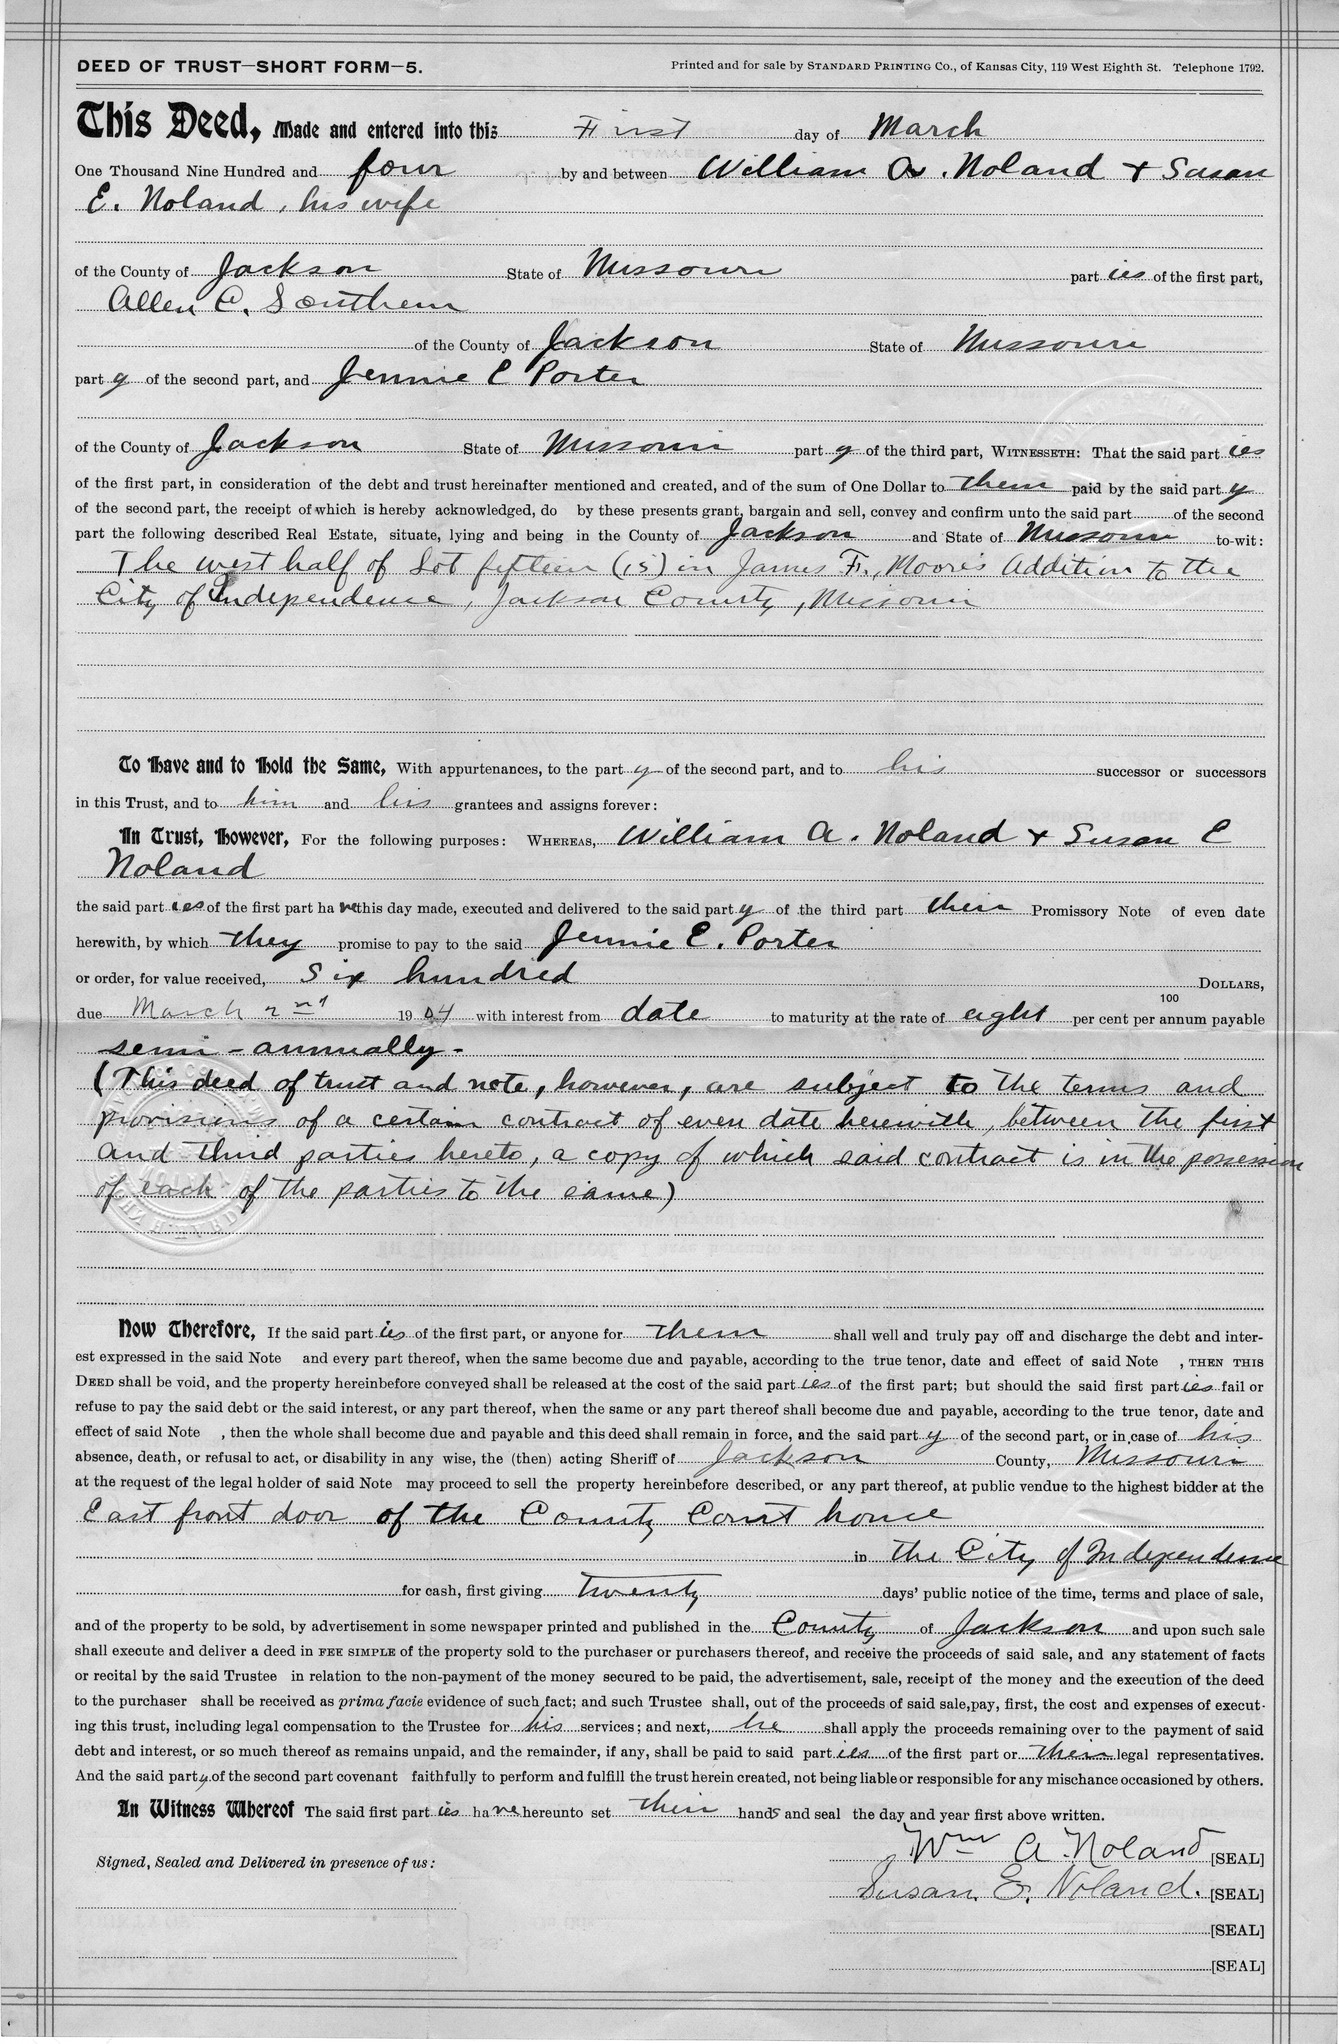 DEED OF TRUST—SHORT FORM—5.
Printed and for sale by STANDARD PRINTING Co., of Kansas City, 119 West Eighth St. Telephone 1792.
This Deed, Made and entered into this First day of March
One Thousand Nine Hundred and four by and between William A. Noland & Susan
E. Noland, his wife
of the County of Jackson State of Missouri part ies of the first part,
Allen C. Southern
of the County of Jackson State of Missouri
part y of the second part, and Jennie E Porter
of the County of Jackson State of Missouri part y of the third part, WITNESSETH: That the said part ies
of the first part, in consideration of the debt and trust hereinafter mentioned and created, and of the sum of One Dollar to them paid by the said part y
of the second part, the receipt of which is hereby acknowledged, do by these presents grant, bargain and sell, convey and confirm unto the said part of the second
part the following described Real Estate, situate, lying and being in the County of Jackson and State of Missouri to-wit:
The west half of Lot fifteen (15) in James F. Moore's Addition to the
City of Independence, Jackson County, Missouri
To Have and to Hold the Same, With appurtenances, to the part y of the second part, and to his successor or successors
in this Trust, and to him and his grantees and assigns forever:
In Trust, However, For the following purposes: WHEREAS, William A. Noland & Susan E
Noland
the said part ies of the first part ha ve this day made, executed and delivered to the said part y of the third part their Promissory Note of even date
herewith, by which they promise to pay to the said Jennie E. Porter
or order, for value received, Six hundred DOLLARS,
100
due March 2nd 1904 with interest from date to maturity at the rate of eight per cent per annum payable
semi-annually-
(This deed of trust and note, however, are subject to the terms and
provisions of a certain contract of even date herewith, between the first
and third parties hereto, a copy of which said contract is in the possession
of each of the parties to the same)
Now Therefore, If the said part ies of the first part, or anyone for them shall well and truly pay off and discharge the debt and inter-
est expressed in the said Note and every part thereof, when the same become due and payable, according to the true tenor, date and effect of said Note , THEN THIS
DEED shall be void, and the property hereinbefore conveyed shall be released at the cost of the said part ies of the first part; but should the said first part ies fail or
refuse to pay the said debt or the said interest, or any part thereof, when the same or any part thereof shall become due and payable, according to the true tenor, date and
effect of said Note , then the whole shall become due and payable and this deed shall remain in force, and the said part y of the second part, or in case of his
absence, death, or refusal to act, or disability in any wise, the (then) acting Sheriff of Jackson County, Missouri
at the request of the legal holder of said Note may proceed to sell the property hereinbefore described, or any part thereof, at public vendue to the highest bidder at the
East front door of the County Court house
in the City of Independence
for cash, first giving twenty days' public notice of the time, terms and place of sale,
and of the property to be sold, by advertisement in some newspaper printed and published in the County of Jackson and upon such sale
shall execute and deliver a deed in FEE SIMPLE of the property sold to the purchaser or purchasers thereof, and receive the proceeds of said sale, and any statement of facts
or recital by the said Trustee in relation to the non-payment of the money secured to be paid, the advertisement, sale, receipt of the money and the execution of the deed
to the purchaser shall be received as prima facie evidence of such fact; and such Trustee shall, out of the proceeds of said sale, pay, first, the cost and expenses of execut-
ing this trust, including legal compensation to the Trustee for his services; and next, he shall apply the proceeds remaining over to the payment of said
debt and interest, or so much thereof as remains unpaid, and the remainder, if any, shall be paid to said part ies of the first part or their legal representatives.
And the said part y of the second part covenant faithfully to perform and fulfill the trust herein created, not being liable or responsible for any mischance occasioned by others.
In Witness Whereof The said first part ies ha ve hereunto set their hands and seal the day and year first above written.
Wm A Noland [SEAL]
Signed, Sealed and Delivered in presence of us:
Susan. E. Noland. [SEAL]
[SEAL]
[SEAL]